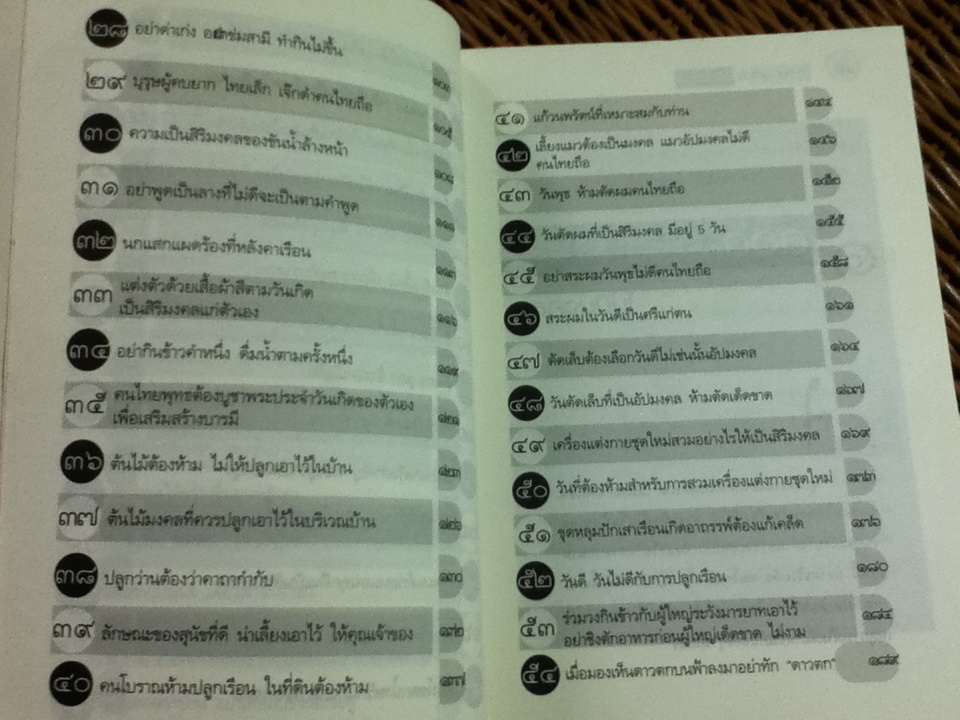 ๒๘ อย่าด่าเก่ง อย่าข่มสามี ทำกินไม่ขึ้น
๒๙ บุรุษผู้คบยาก ไทยเล็ก เจ๊กดำคนไทยถือ
๓๐ ความเป็นสิริมงคลของขันน้ำล้างหน้า
๓๑ อย่าพูดเป็นลางที่ไม่ดีจะเป็นตามคำพูด ๑๑๑
๓๒ นกแสกแผดร้องที่หลังคาเรือน ๑๑๓
๓๓ แต่งตัวด้วยเสื้อผ้าสีตามวันเกิด
เป็นสิริมงคลแก่ตัวเอง ๑๑๖
๓๔ อย่ากินข้าวคำหนึ่ง ดื่มน้ำตามครั้งหนึ่ง ๑๑๙
๓๕ คนไทยพุทธต้องบูชาพระประจำวันเกิดของตัวเอง
เพื่อเสริมสร้างบารมี ๑๒๑
๓๖ ต้นไม้ต้องห้าม ไม่ให้ปลูกเอาไว้ในบ้าน ๑๒๓
๓๗ ต้นไม้มงคลที่ควรปลูกเอาไว้ในบริเวณบ้าน ๑๒๖
๓๘ ปลูกว่านต้องว่าคาถากำกับ ๑๓๐
๓๙ ลักษณะของสุนัขที่ดี น่าเลี้ยงเอาไว้ ให้คุณเจ้าของ
๔๐ คนโบราณห้ามปลูกเรือน ในที่ดินต้องห้าม
๔๑ แก้วนพรัตน์ที่เหมาะสมกับท่าน
๔๒ เลี้ยงแมวต้องเป็นมงคล แมวอัปมงคลไม่ดี
คนไทยถือ ๑๔๖
๔๓ วันพุธ ห้ามตัดผมคนไทยถือ ๑๕๒
๔๔ วันตัดผมที่เป็นสิริมงคล มีอยู่ 5 วัน ๑๕๕
๔๕ อย่าสระผมวันพุธไม่ดีคนไทยถือ ๑๕๘
๔๖ สระผมในวันดีเป็นศรีแก่ตน ๑๖๑
๔๗ ตัดเล็บต้องเลือกวันดีไม่เช่นนั้นอัปมงคล ๑๖๔
๔๘ วันตัดเล็บที่เป็นอัปมงคล ห้ามตัดเด็ดขาด ๑๖๗
๔๙ เครื่องแต่งกายชุดใหม่สวมอย่างไรให้เป็นสิริมงคล ๑๖๙
๕๐ วันที่ต้องห้ามสำหรับการสวมเครื่องแต่งกายชุดใหม่ ๑๗๓
๕๑ ขุดหลุมปักเสาเรือนเกิดอาถรรพ์ต้องแก้เคล็ด ๑๗๖
๕๒ วันดี วันไม่ดีกับการปลูกเรือน ๑๘๐
๕๓ ร่วมวงกินข้าวกับผู้ใหญ่ระวังมารยาทเอาไว้
อย่าชิงตักอาหารก่อนผู้ใหญ่เด็ดขาด ไม่งาม ๑๘๔
๕๔ เมื่อมองเห็นดาวตกบนฟ้าลงมาอย่าทัก "ดาวตก" ๑๘๙